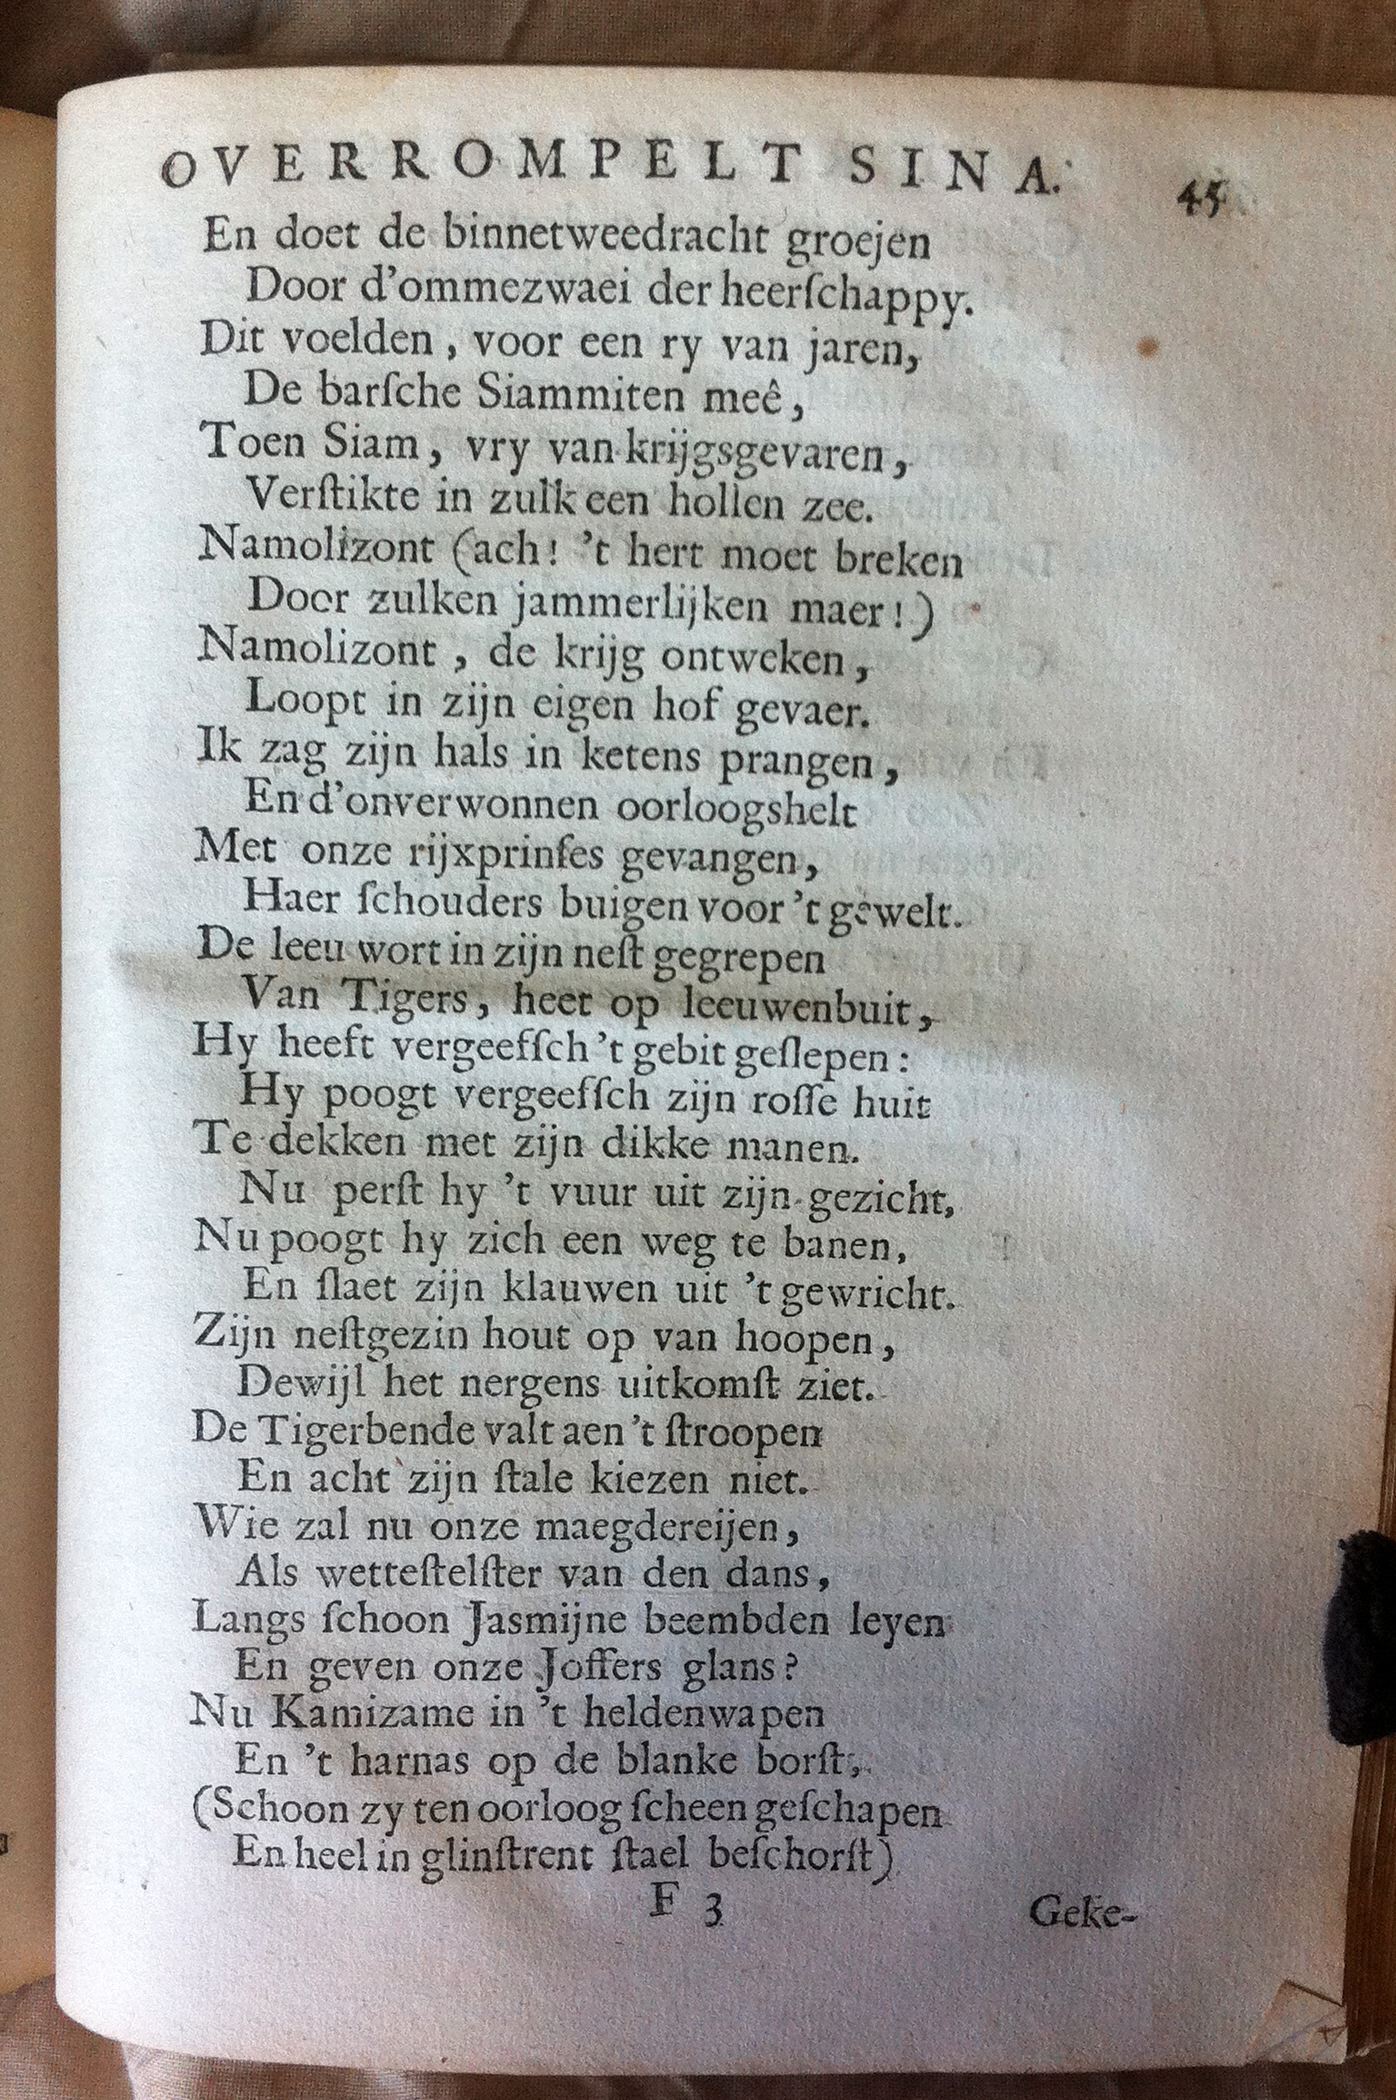 OVERROMPELT SINA. 45
En doet de binnetweedracht groejen
Door d'ommezwaei der heerſchappy.
Dit voelden, voor een ry van jaren,
De barſche Siammiten meê,
Toen Siam, vry van krijgsgevaren,
Verſtikte in zulk een hollen zee.
Namolizont (ach! 't hert moet breken
Door zulken jammerlijken maer!)
Namolizont, de krijg ontweken,
Loopt in zijn eigen hof gevaer.
Ik zag zijn hals in ketens prangen,
En d'onverwonnen oorloogshelt
Met onze rijxprinſes gevangen,
Haer ſchouders buigen voor 't gewelt.
De leeu wort in zijn neſt gegrepen
Van Tigers, heet op leeuwenbuit,
Hy heeft vergeefſch 't gebit geſlepen:
Hy poogt vergeefſch zijn roſſe huit
Te dekken met zijn dikke manen.
Nu perſt hy 't vuur uit zijn gezicht,
Nu poogt hy zich een weg te banen,
En ſlaet zijn klauwen uit 't gewricht.
Zijn neſtgezin hout op van hoopen,
Dewijl het nergens uitkomſt ziet.
De Tigerbende valt aen 't ſtroopen
En acht zijn ſtale kiezen niet.
Wie zal nu onze maegdereijen,
Als wetteſtelſter van den dans,
Langs ſchoon Jasmijne beembden leyen
En geven onze Joffers glans?
Nu Kamizame in 't heldenwapen
En 't harnas op de blanke borſt,
(Schoon zy ten oorloog ſcheen geſchapen
En heel in glinſtrent ſtael beſchorſt)
F 3 Geke-